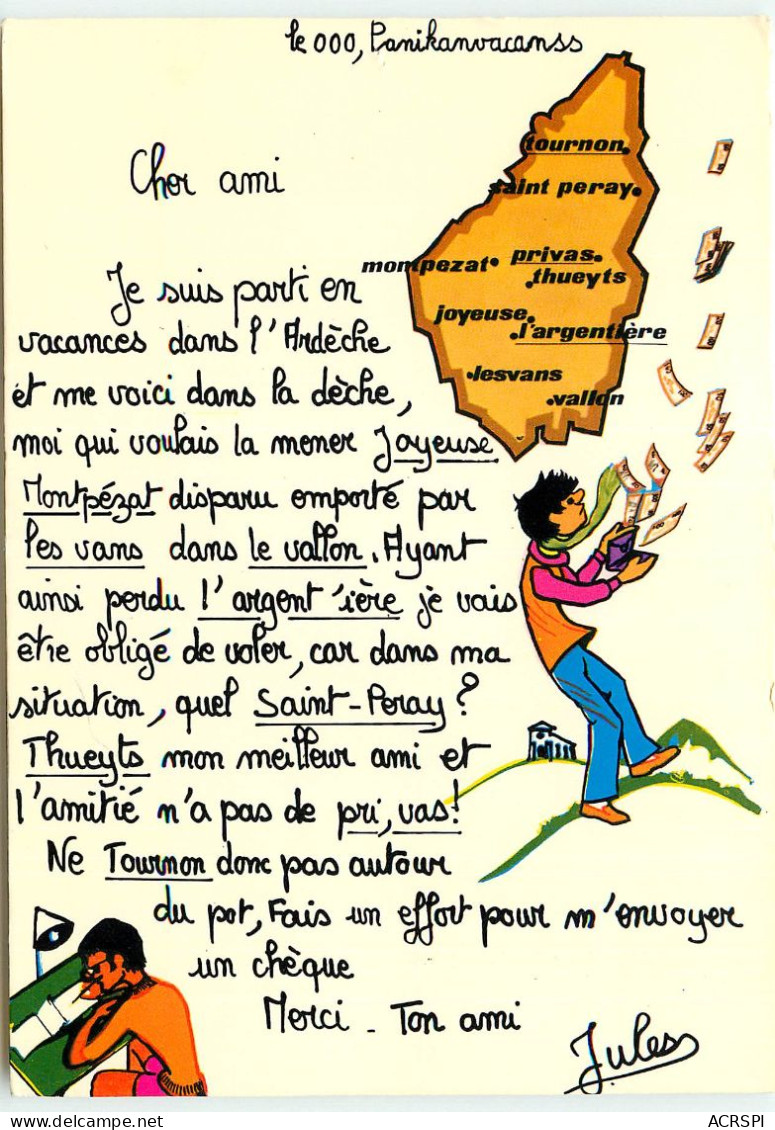 le 000, Panikanvacanss
tournon
saint peray
montpezat
privas
thueyts
joyeuse
l'argentière
lesvans
vallon
Cher ami
Je suis parti en
vacances dans l'Ardèche
et me voici dans la dèche,
moi qui voulais la mener Joyeuse
Montpézat disparu emporté par
les vans dans le vallon. Ayant
ainsi perdu l'argent'ière je vais
être obligé de voler, car dans ma
situation, quel Saint-Peray ?
Thueyts mon meilleur ami et
l'amitié n'a pas de pri, vas!
Ne Tournon donc pas autour
du pot, Fais un effort pour m'envoyer
un chèque
Merci _ Ton ami
Jules
ACRSPI